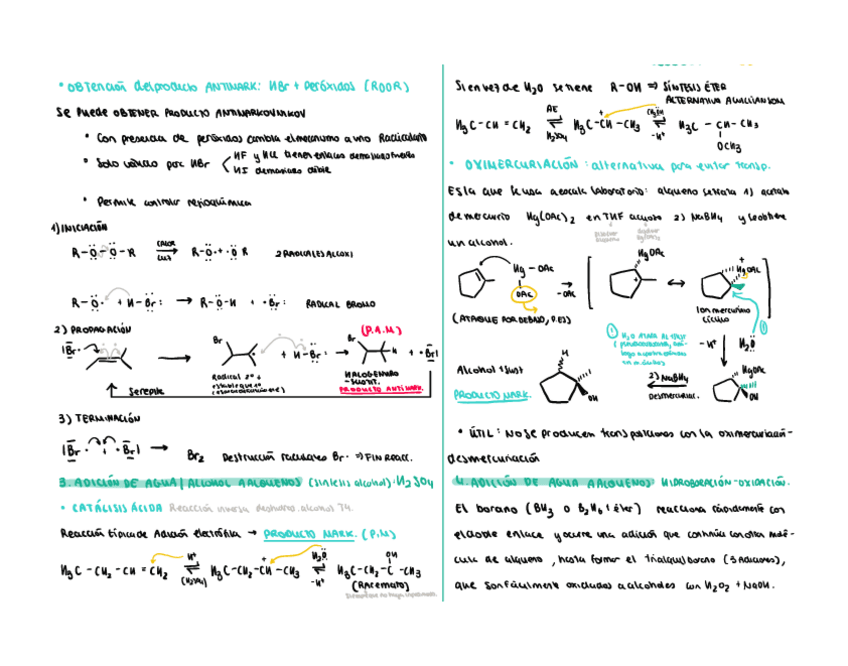 • OBTENCIÓN del producto ANTIMARK: HBr + Peróxidos (ROOR)
Se Puede OBTENER PRODUCTO ANTIMARKOVNIKOV
• Con presencia de peróxidos cambia el mecanismo a uno Radicalario
• Solo válido por HBr HF y HCl tienen enlaces demasiado fuertes
HI demasiado débil
• Permite controlar regioquímica
1) INICIACIÓN
R-Ö-Ö-R CALOR LUZ R-Ö· + ·Ö R 2 RADICALES ALCOXI
R-Ö· + H-Br: → R-Ö-H + ·Br: RADICAL BROMO
2) PROPAGACIÓN
(P.A.M)
|Br· → Br + H-Br: → Br H + ·Br|
Radical 2º +
HALOGENURO
PRODUCTO ANTIMARK.
Se repite
3) TERMINACIÓN
|Br· ·Br| → Br2 Destrucción radicales Br· ⇒ FIN REACC.
3. ADICIÓN DE AGUA/ALCOHOL A ALQUENOS (síntesis alcohol): H2SO4
• CATÁLISIS ÁCIDA Reacción inversa deshidro. alcoholes T4.
Reacción típica de Adición electrófila → PRODUCTO MARK. (P.M)
H3C-CH2-CH=CH2 H+ (H2SO4) H3C-CH2-CH-CH3 + H2Ö -H+ H3C-CH2-C-CH3 OH
(RACEMATO)
Si en vez de H2O se tiene R-OH ⇒ SÍNTESIS ÉTER
ALTERNATIVA A WILLIAMSON
H3C-CH=CH2 AE H2SO4 H3C-CH-CH3 + CH3ÖH -H+ H3C-CH-CH3
OCH3
• OXIMERCURIACIÓN: alternativa para evitar transp.
Es la que se usa a escala laboratorio: alqueno se trata 1) acetato
de mercurio Hg(OAc)2 en THF acuoso 2) NaBH4 y se obtiene
un alcohol.
Hg-OAc OAc → -OAc HgOAc + ↔ + HgOAc
(ATAQUE POR DEBAJO, P.EJ)
Ion mercurinio
cíclico
1 H2O ATACA AL + SUST
-H+ H2Ö 1
Alcohol + sust
PRODUCTO MARK.
H OH 2) NaBH4 Desmercuriac. HgOAc OH
• ÚTIL: No se producen transposiciones con la oximercuriación-
desmercuriación
4. ADICIÓN DE AGUA A ALQUENOS HIDROBORACIÓN-OXIDACIÓN.
El borano (BH3 o B2H6 / éter) reacciona rápidamente con
el doble enlace y ocurre una adición que continúa con otra molé-
cula de alqueno, hasta formar el trialquilborano (3 Adiciones),
que son fácilmente oxidados a alcoholes con H2O2 + NaOH.